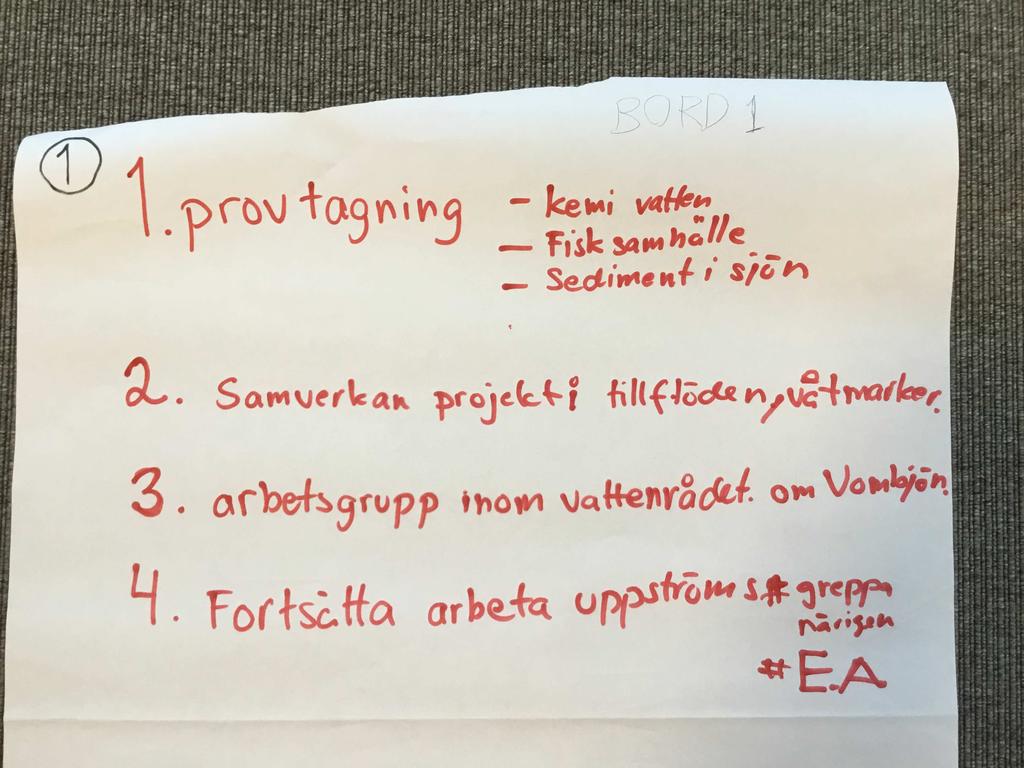 BORD 1
1
1. provtagning - kemi vatten
- Fisksamhälle
- Sediment i sjön
2. Samverkan projekt i tillflöden, våtmarker.
3. arbetsgrupp inom vattenrådet. om Vombjön.
4. Fortsätta arbeta uppströms. # greppa
närigen
# E.A